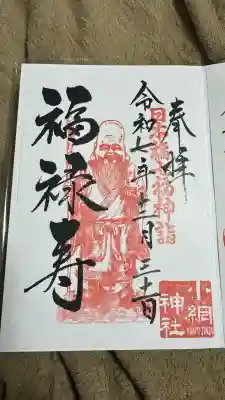 奉拝
令和七年十二月三十日
日本橋七福神詣
福禄寿
小網
神社